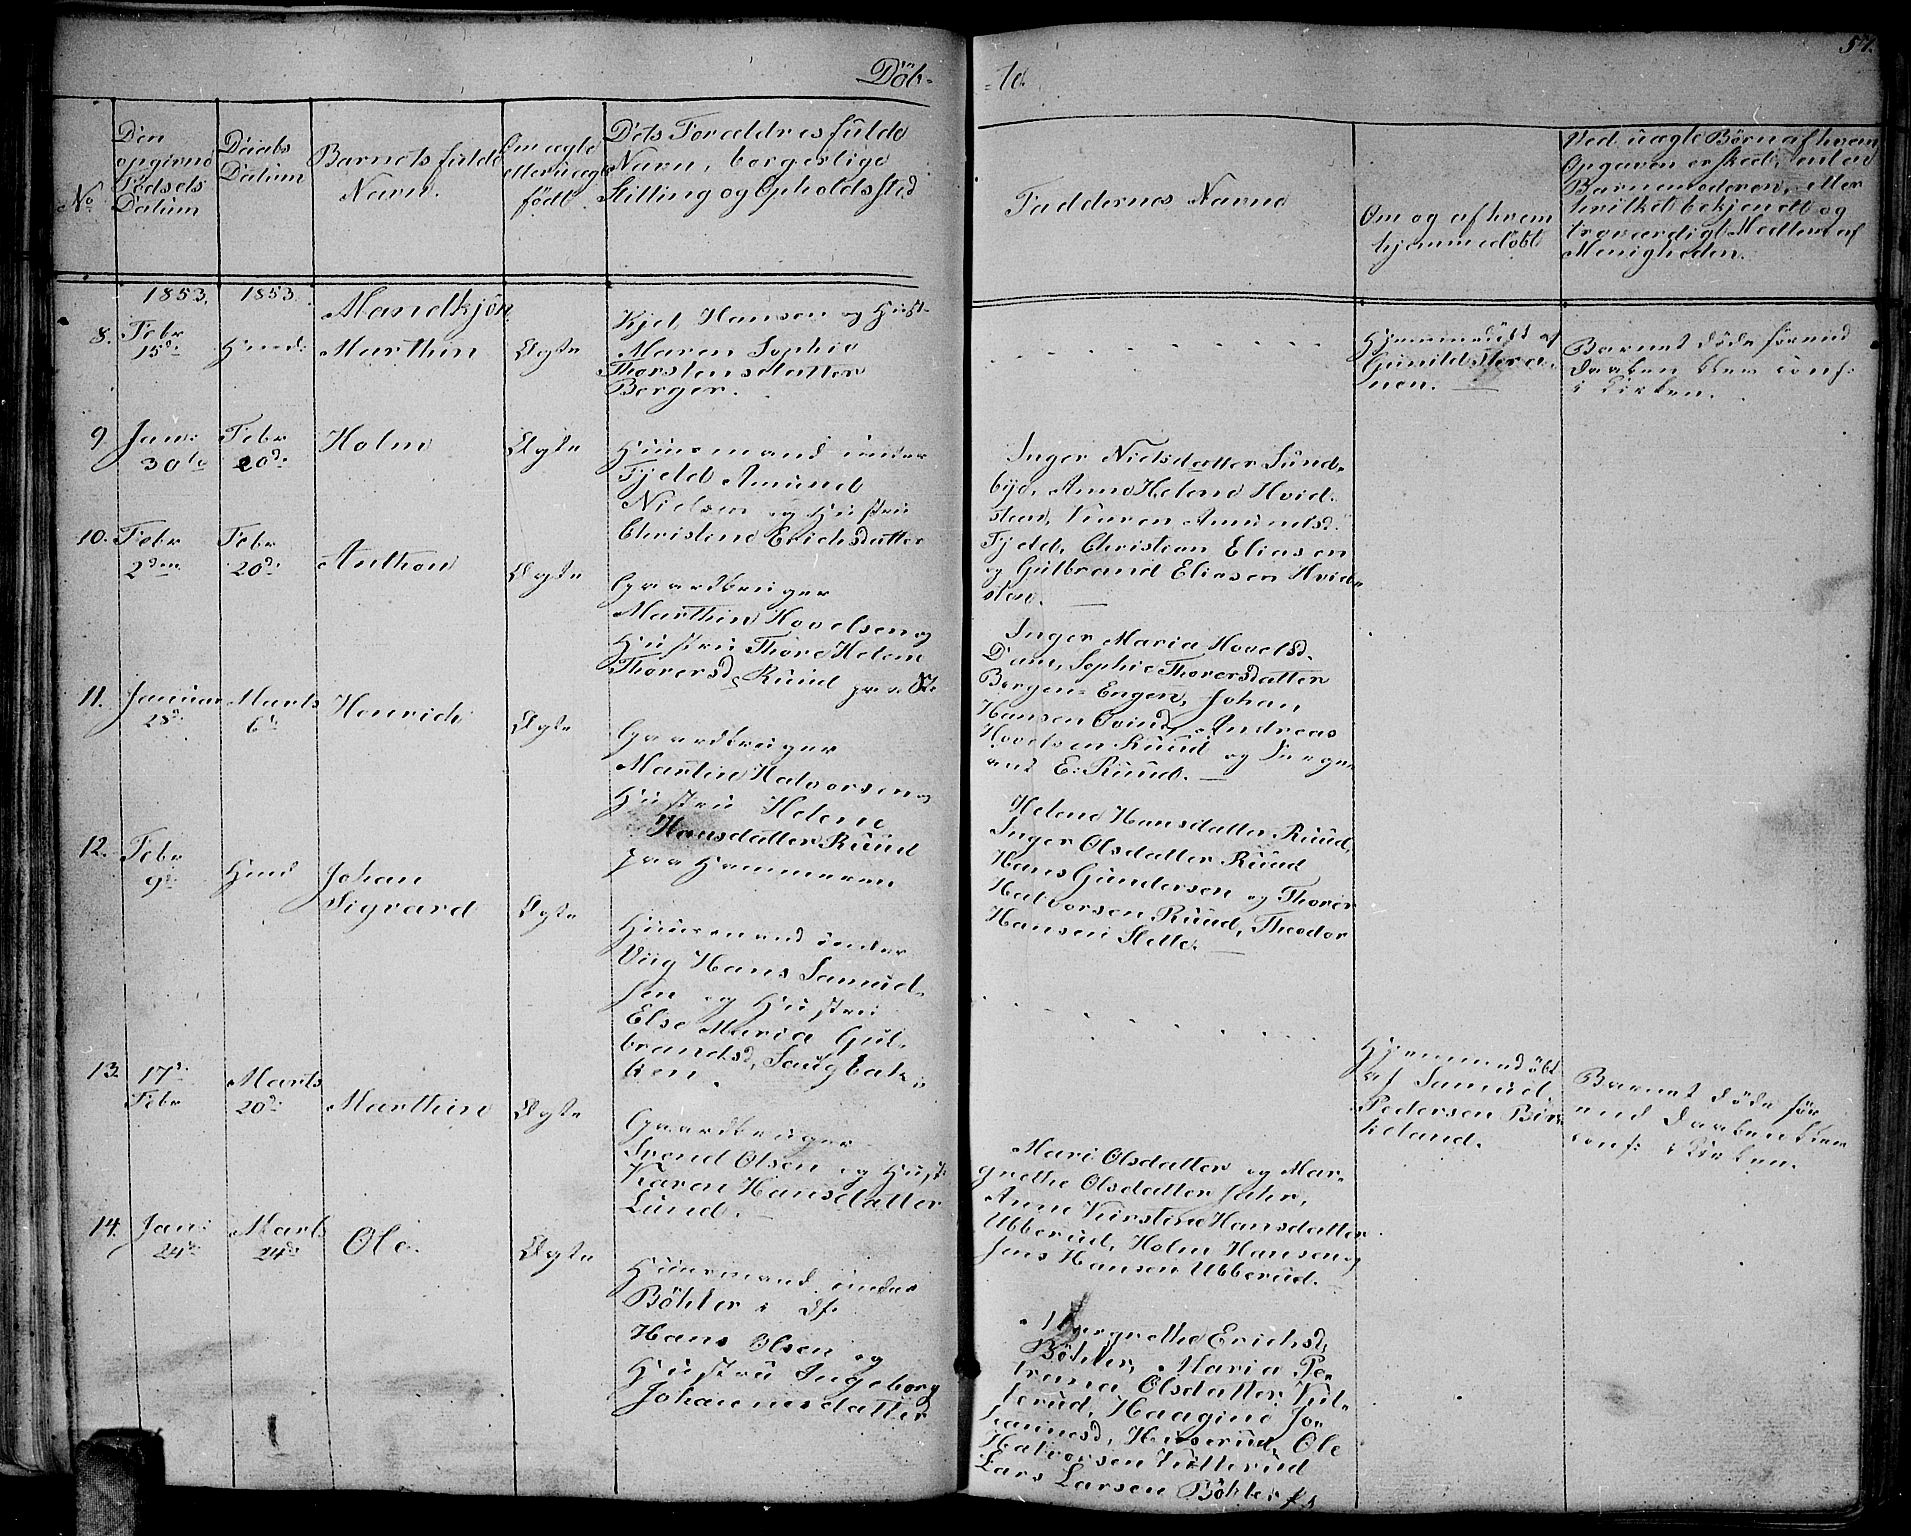 57.
Döb-
-te.
No
Den
opgivne
Fødsels
Datum
Daabs
Datum
Barnets fulde
Navn.
Om ægte
eller uægte
født.
Dets Forældres fulde
Navn, borgerlige
Stilling og Opholdssted
Faddernes Navne
Om og af hvem
hjemmedöbt
Ved uægte Börn af hvem
Opgaven er skedt, enten
Barnemoderen, eller
hvilket bekjendt og
troværdigt Medlem af
Menigheden.
1853.
1853.
Mandkjön
8.
Febr
15de
Hjemd:
Marthin
Ægte
Kjel Hansen og Hust-
Maren Sophie
Thorstensdatter
Berger.
Hjemmedöbt af
Gunild
nen.
Barnet döde förend
Daaben blev conf:
i Kirken.
9
Jan:
30te
Febr
20de
Holm
Ægte
Huusmand under
Fjeld Amund
Nielsen og Hustru
Christine Erichsdatter
Inger Nielsdatter Sund-
bye, Anne Helene Hvid-
sten, Karen Amundsd.
Fjeld, Christian Eliasen
og Gulbrand Eliasen Hvid-
sten.
10.
Febr
2den
Febr
20de
Anthon
Ægte
Gaardbruger
Marthin Hovelsen og
Hustru Thore Helene
Thorersd, Ruud
Inger Maria Hovelsd.
Dam, Sophie Thorersdatter
Borgen-Engen, Johan
Hansen Ovind, Andreas
Hovelsen Ruud og
E: Ruud.
11.
Januar
28de
Marts
6te
Henrich
Ægte
Gaardbruger
Martin Halvorsen og
Hustru Helene
Hansdatter Ruud
paa Hammeren
Helene Hansdatter Ruud,
Inger Olsdatter Ruud
Hans Gundersen og Thorer
Halvorsen Ruud, Theodor
Hansen Slette.
12.
Febr
9de
Hjmd
Johan
Sigvard
Ægte
Huusmand under
Viig Hans Samuel-
sen og Hustru
Else Maria Gul-
brandsd, Saugbak-
ken.
Hjemmedöbt
af Samuel
Pedersen Bir-
keland.
Barnet döde för-
end Daaben blev
conf: i Kirken.
13.
17de
Febr
Marts
20de
Marthin
Ægte
Gaardbruger
Svend Olsen og Hust:
Karen Hansdatter
Lund.
Mari Olsdatter og Mar-
grethe Olsdatter
Anne Kirstine Hansdatter
Ubberud, Holm Hansen og
Jens Hansen Ubberud.
14.
Jan:
24de
Marts
24de
Ole
Ægte
Huusmand under
Böhler i
Hans Olsen og
Hustru Ingeborg
Johannesdatter
Margrethe Erichsd,
Böhler, Maria Pe-
trine Olsdatter
Haagine Jo-
hannesd, Huserud, Ole
Halvorsen
Lars Larsen Böhler